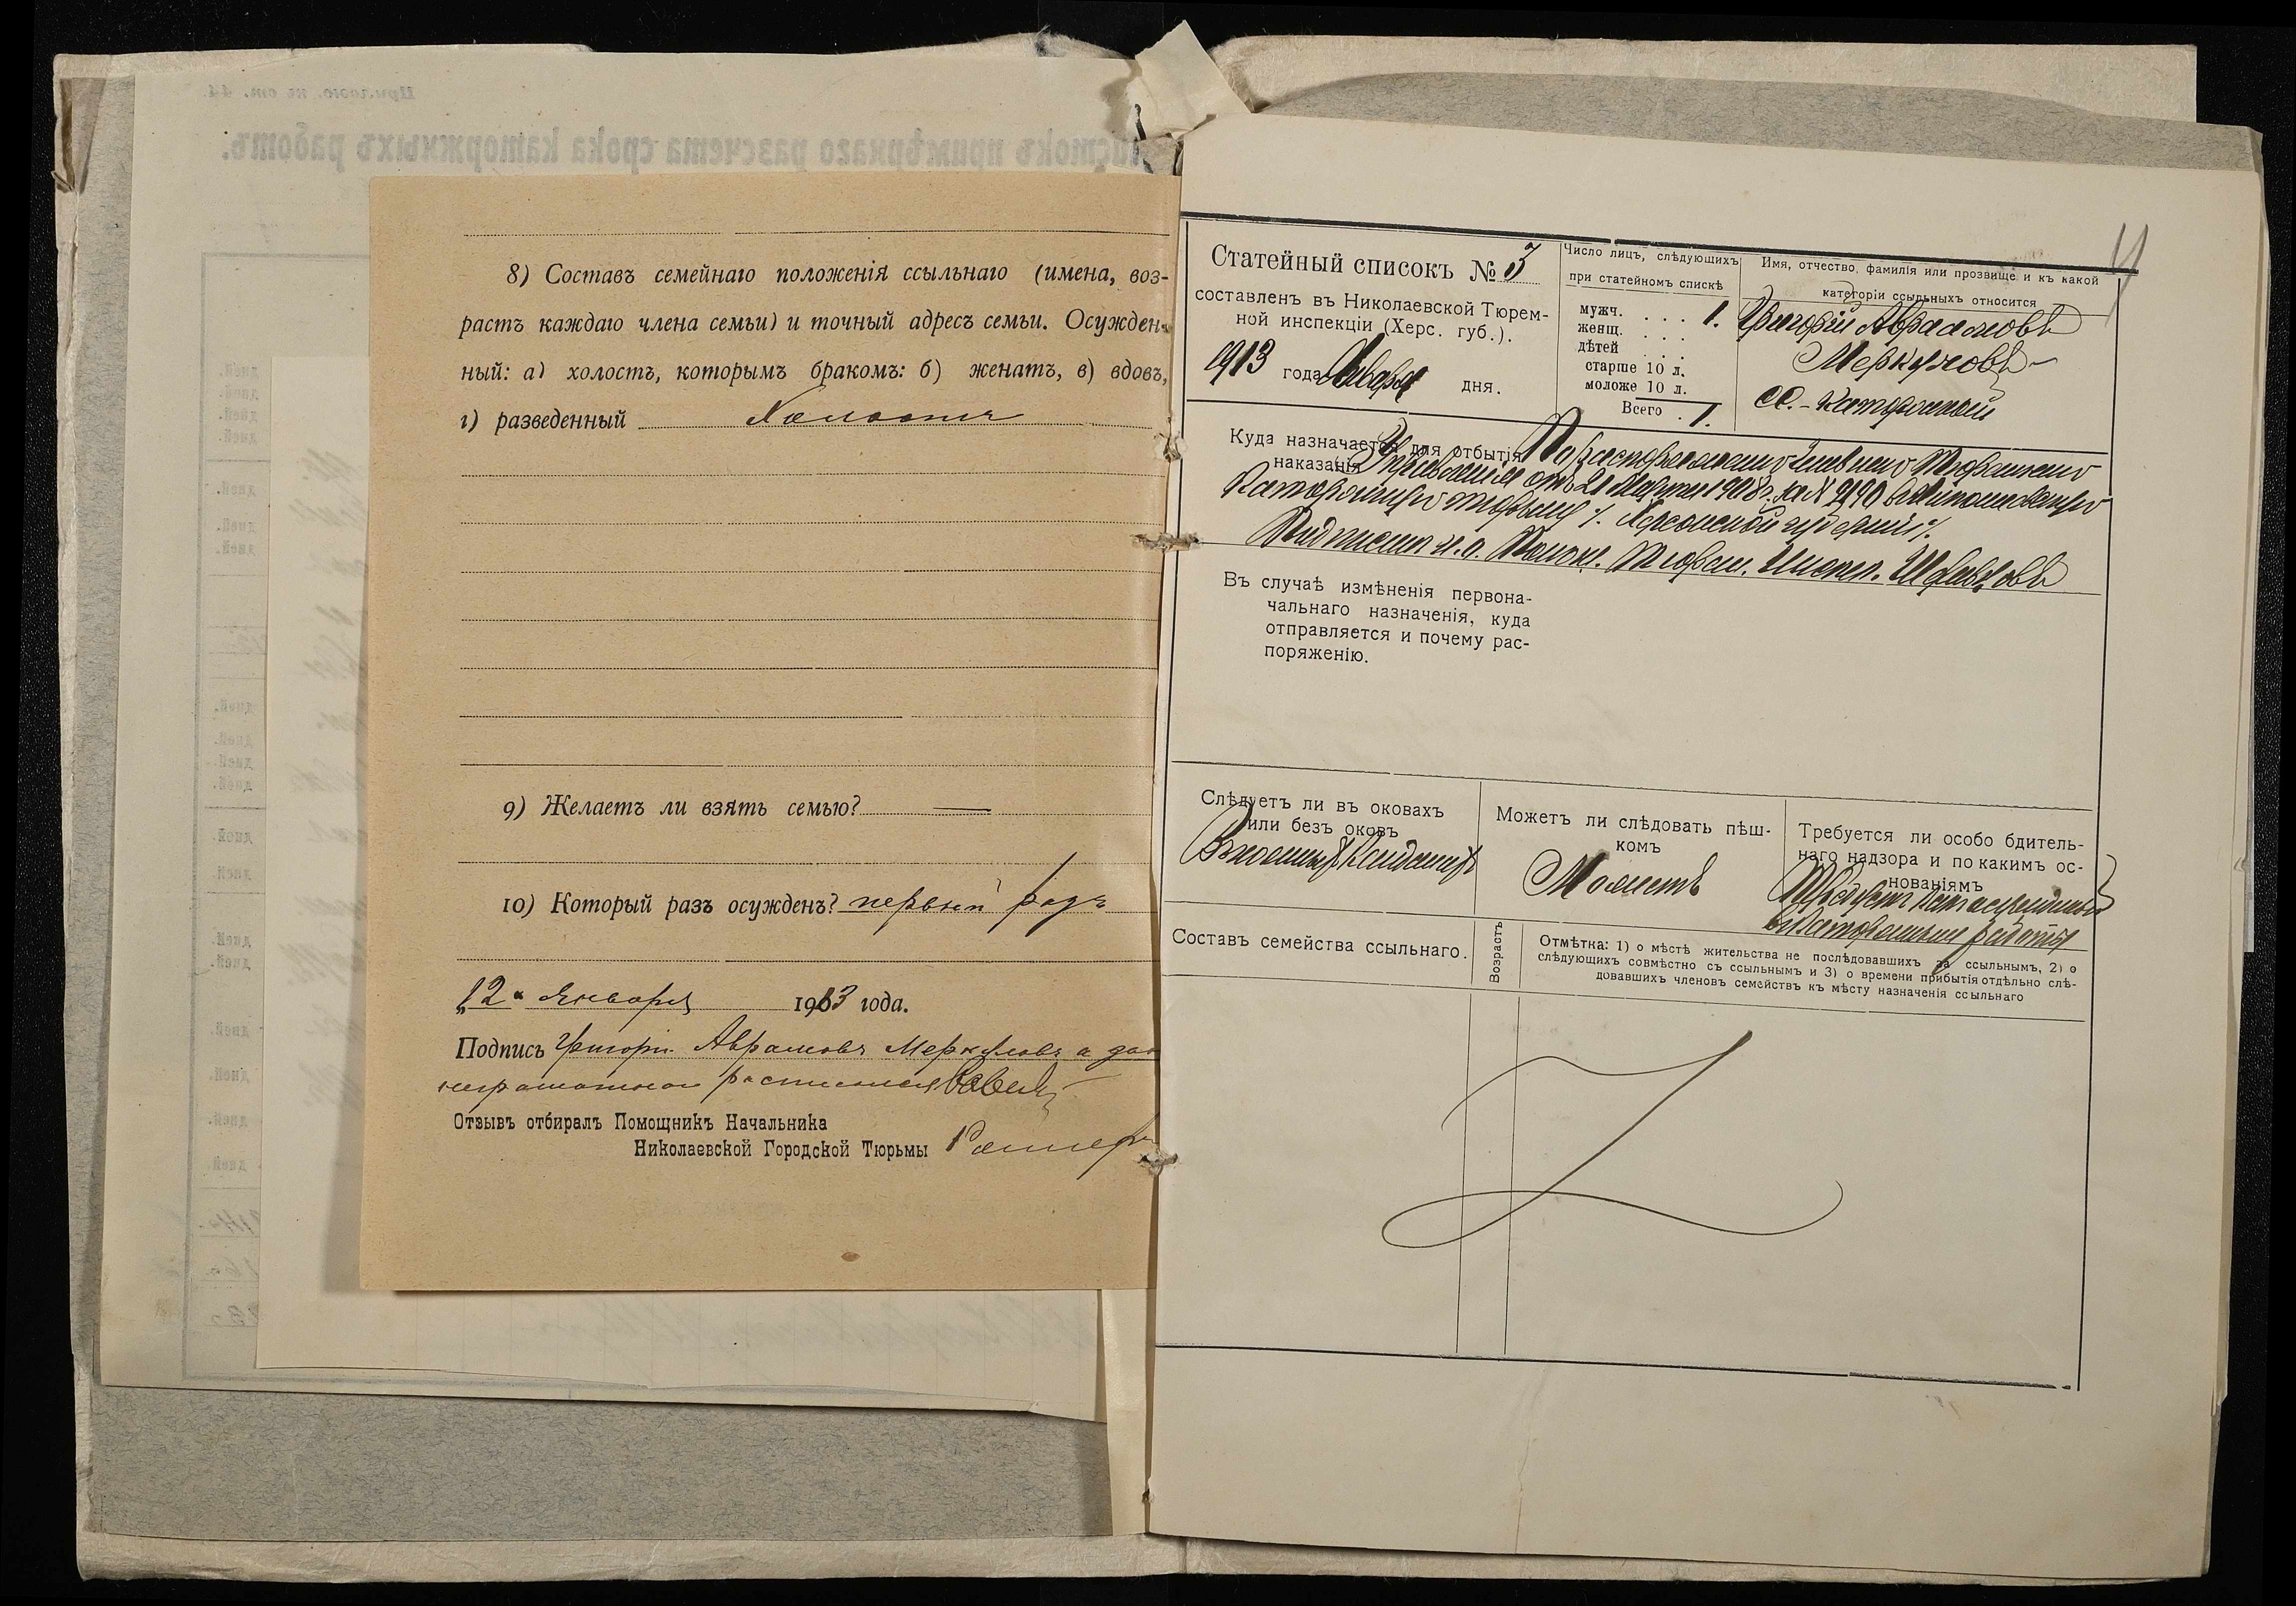 8) Составъ семейнаго положенія ссыльнаго (имена, воз-
растъ каждаго члена семьи) и точный адресъ семьи. Осужден-
ный: а) холостъ, которымъ бракомъ: б) женатъ, в) вдовъ,
г) разведенный Холостъ
9) Желаетъ ли взять семью?
10) Который разъ осужденъ? первый разъ
„12" Января 1913 года.
Подпись Григорій Аврамовъ Меркуловъ а за
неграмотнаго росписался
Отзывъ отбиралъ Помощникъ Начальника
Николаевской Городской Тюрьмы
Статейный списокъ № 3
составленъ въ Николаевской Тюрем-
ной инспекціи (Херс. губ.).
1913 года Января дня.
Число лицъ, слѣдующихъ
при статейномъ спискѣ
мужч. . . . 1.
женщ. . . .
дѣтей . . .
старше 10 л.
моложе 10 л.
Всего . 1.
Имя, отчество, фамилія или прозвище и къ какой
категоріи ссыльныхъ относится
Григорій Авраамовъ
Меркуловъ
СС.-Каторжный
Куда назначается для отбытія
наказанія
По распоряженію Главнаго Тюремнаго
Управленія отъ 21 Марта 1908 г. за N
Каторжную тюрьму /. Херсонской губерніи /.
Подписалъ и.о. Помощн. Тюремн. Инспек. Шравцовъ
Въ случаѣ измѣненія первона-
чальнаго назначенія, куда
отправляется и почему рас-
поряженію.
Слѣдуетъ ли въ оковахъ
или безъ оковъ
Въ ножныхъ Кандалахъ
Можетъ ли слѣдовать пѣш-
комъ
Можетъ
Требуется ли особо бдитель-
наго надзора и по какимъ ос-
нованіямъ
Требуетъ какъ осужденный
въ Каторжныя работы
Составъ семейства ссыльнаго.
Возрастъ
Отмѣтка: 1) о мѣстѣ жительства не послѣдовавшихъ за ссыльнымъ, 2) о
слѣдующихъ совмѣстно съ ссыльнымъ и 3) о времени прибытія отдѣльно слѣ-
довавшихъ членовъ семействъ къ мѣсту назначенія ссыльнаго